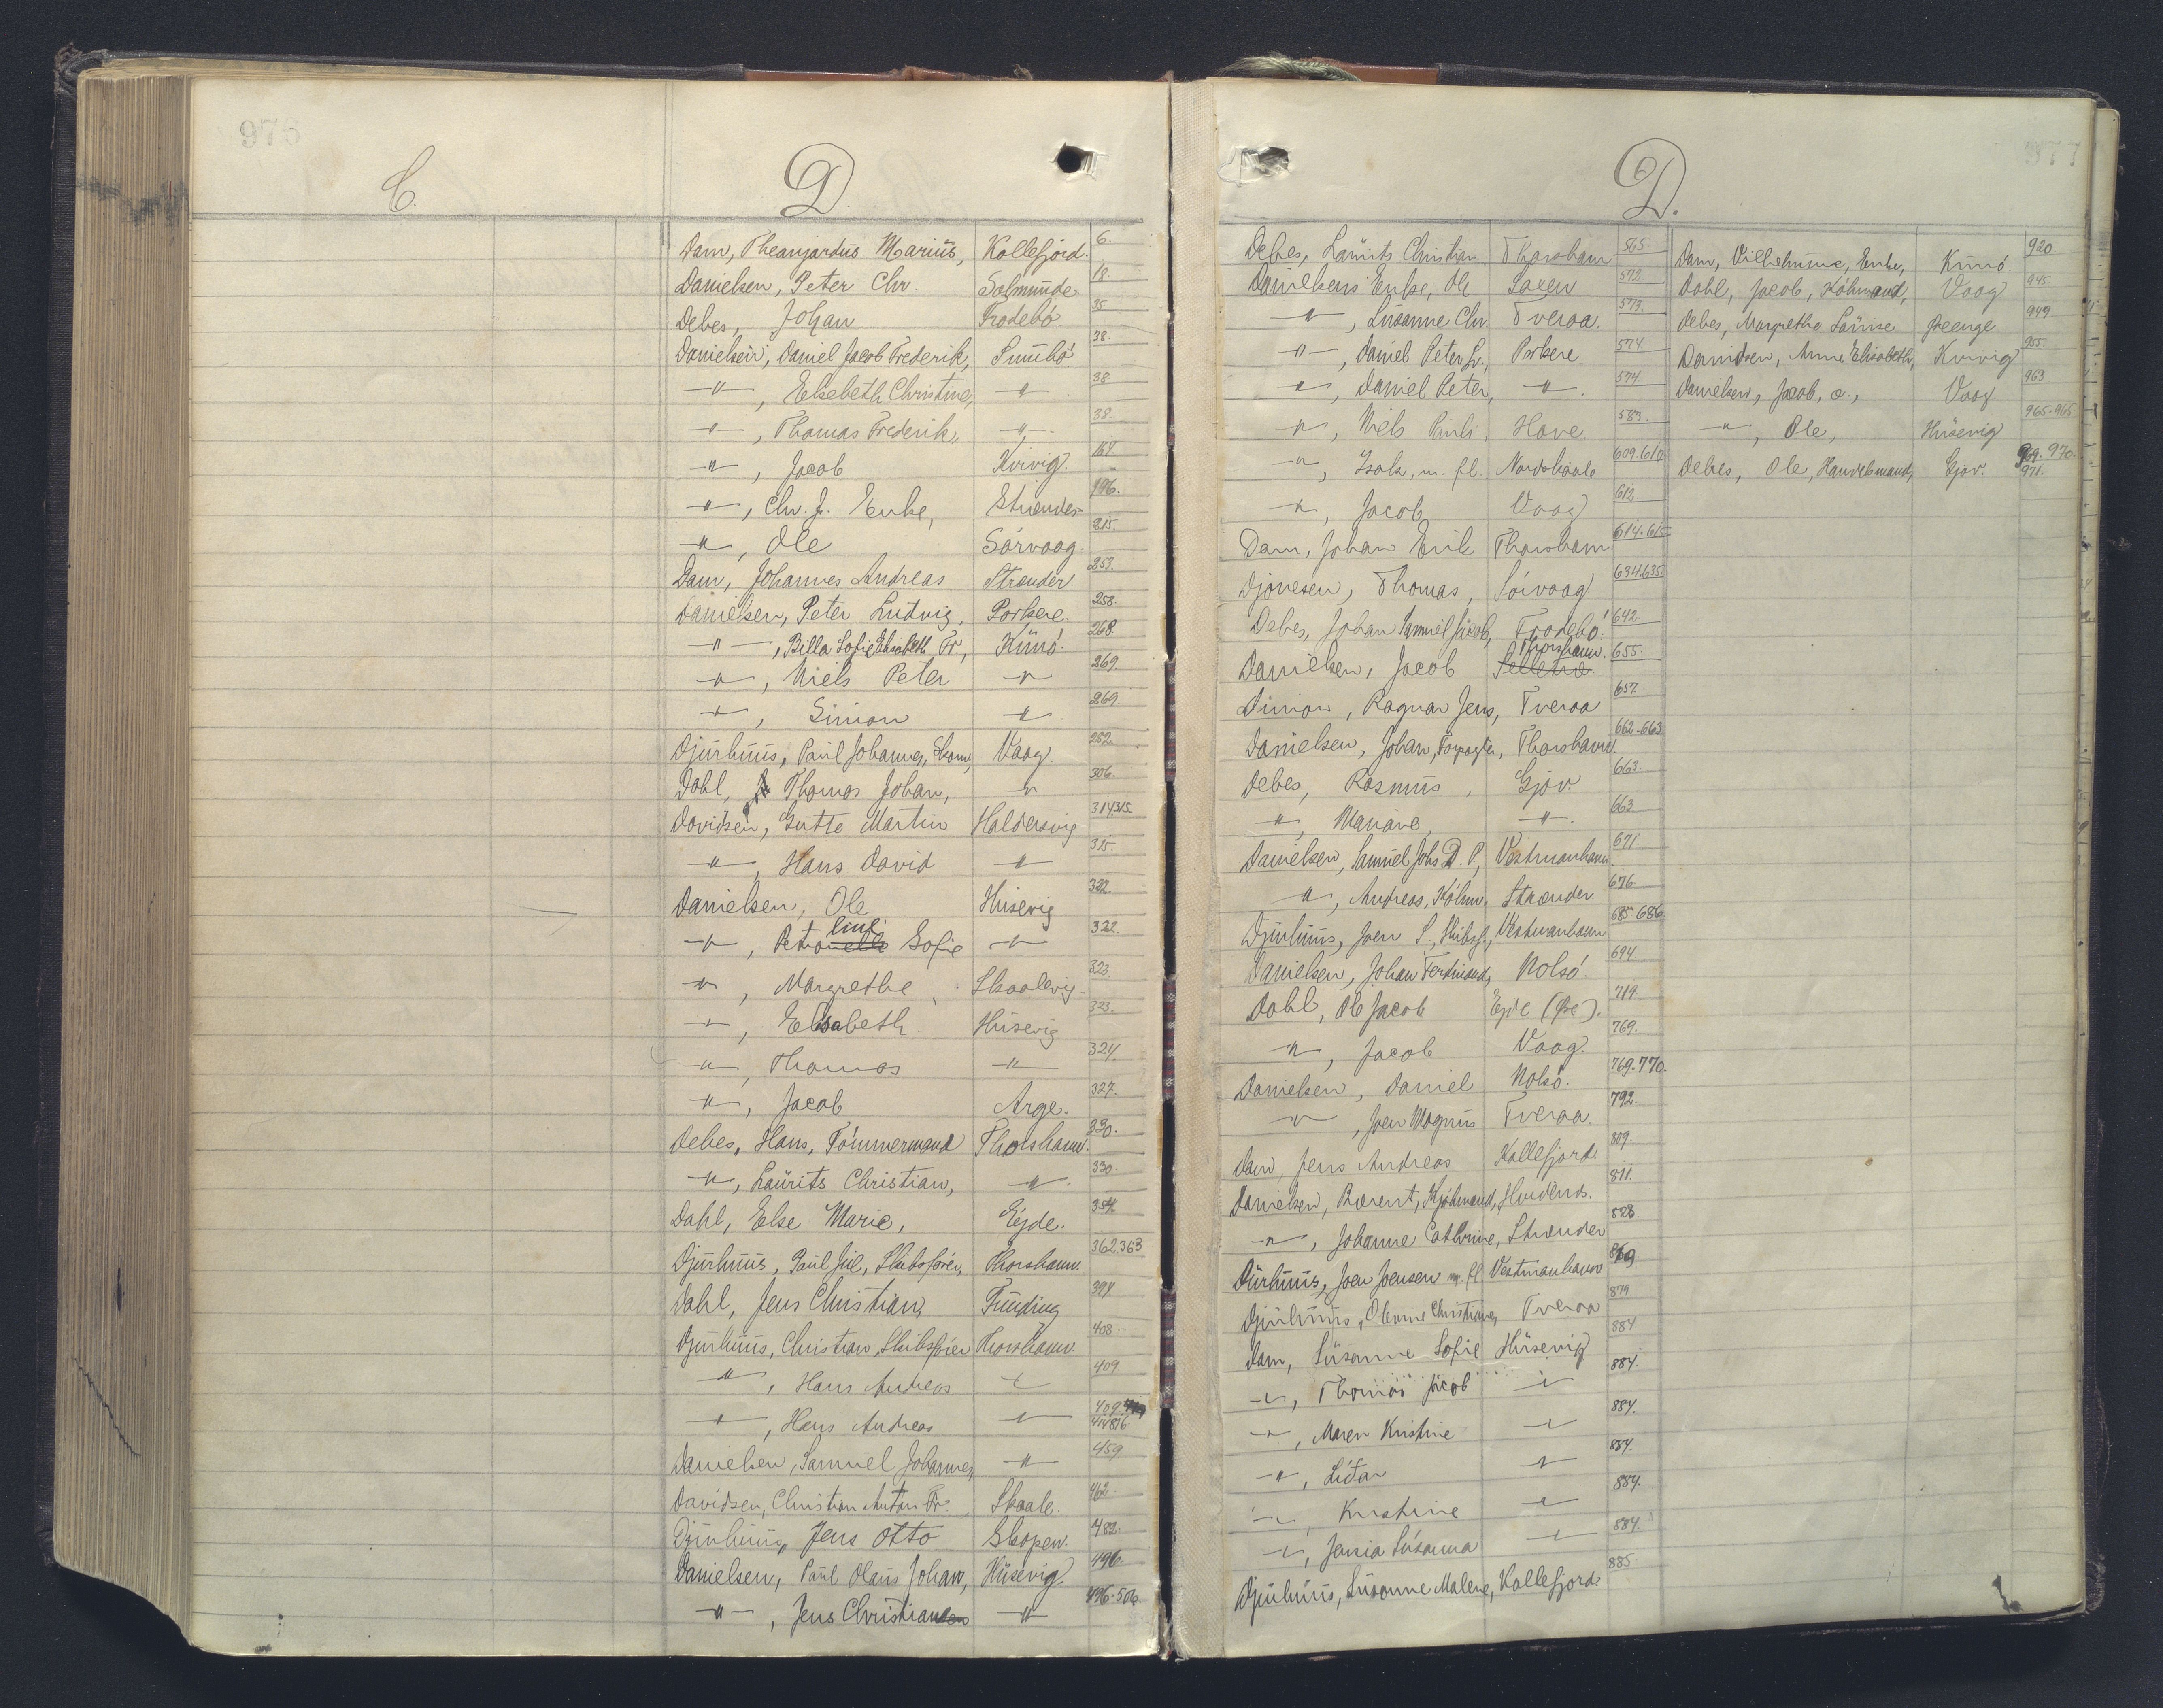 976
C.
D.
Dam, Theanjardus Marius, Kollefjord. 6.
Danielsen, Peter Chr. Salmunde 18.
Debes, Johan Frodebö. 35
Danielsen, Daniel Jacob Frederik, Sumbö 38.
—"—, Elsebeth Christine, —"— 38
—"—, Thomas Frederik, —"— 38.
—"—, Jacob Kvivig. 164
—"—, Chr. J. Enke, Strænder 196.
—"—, Ole Sörvaag. 215.
Dam, Johannes Andreas Strænder 253.
Danielsen, Peter Ludvig, Porkere. 258.
—"—, Billa Sofie Elisabeth Fr., Kunö. 268.
—"—, Niels Peter —"— 269.
—"—, Simon —"— 269.
Djurhuus, Paul Johannes, Skom, Vaag. 282.
Dahl, Thomas Johan, " 306.
Davidsen, Gutte Martin Haldersvig 314.315.
—"—, Hans David —"— 315.
Danielsen, Ole Husevig 322.
—"—, Petroline Sofie —"— 322.
—"—, Margrethe, Skaalevig 323.
—"—, Elisabeth Husevig 323.
—"—, Thomas —"— 324
—"—, Jacob Arge. 327.
Debes, Hans, Tömmermand Thorshavn. 330.
—"—, Laurits Christian, —"— 330.
Dahl, Else Marie, Ejde. 354
Djurhuus, Paul Juel, Skibsförer, Thorshavn. 362.363
Dahl, Jens Christian, Funding 394
Djurhuus, Christian, Skibsförer Thorshavn 408.
—"—, Hans Andreas —"— 409
—"—, Hans Andreas —"— 409.
Danielsen, Samuel Johannes, —"— 459
Davidsen, Christian Anton Fr. Skaale. 462.
Djurhuus, Jens Otto Skopen. 489.
Danielsen, Paul Olaus Johan, Husevig 496.
—"—, Jens Christian —"— 496.506.
977
D.
Debes, Laurits Christian, Thorshavn 565
Danielsens Enke, Ole Saxen 572.
—"—, Susanne Chr. Tveraa. 573.
—"—, Daniel Peter S., Porkere 574
—"—, Daniel Peter, —"—. 574
—"—, Niels Pauli, Hove. 583.
—"—, Isak, m. fl. Nordskaale 609.610
—"—, Jacob Vaag 612
Dam, Johan Erik Thorshavn. 614.615
Djonesen, Thomas, Sörvaag 634.635.
Debes, Johan Samuel Jacob, Frodebö. 642
Danielsen, Jacob Selletræ Thorshavn. 655.
Dimon, Ragnar Jens, Tveraa 657
Danielsen, Johan, Forpagter, Thorshavn. 662.663
Debes, Rasmus, Gjov. 663.
—"—, Mariane, —"—. 663
Danielsen, Samuel Johs D. P., Vestmanhavn. 671
—"—, Andreas, Köbm. Strænder 676
Djurhuus, Joen S., Skibsf., Vestmanhavn 685.686.
Danielsen, Johan Ferdinand, Nolsö. 694
Dahl, Ole Jacob Ejde (Öre). 719
—"—, Jacob Vaag. 769.
Danielsen, Daniel Nolsö. 769.770.
—"—, Joen Magnus Tveraa. 792.
Dam, Jens Andreas Kollefjord. 809.
Danielsen, Bærent, Kjöbmand, Hvidenæs. 811.
—"—, Johanne Cathrine, Strænder 828.
Durhuus, Joen Joensen m. fl. Vestmanhavn
Djurhuus, Olevine Christiane, Tveraa 879
Dam, Susanne Sofie Husevig 884
—"—, Thomas Jacob —"— 884.
—"—, Maren Kristine —"— 884.
—"—, Liffar —"— 884.
—"—, Kristine —"— 884.
—"—, Jensia Susanna —"— 884.
Djurhuus, Susanne Malene, Kollefjord. 885.
Dam, Vilhelmine, Enke, Kunö. 920
Dahl, Jacob, Köbmand, Vaag 945.
Debes, Margrethe Louise Heenge 949
Danielsen, Anne Elisabeth, Kvivig 955.
Danielsen, Jacob, a., Vaag 963
—"—, Ole, Husevig 965.965
Debes, Ole, Handelsmand, Gjov. 970. 971.